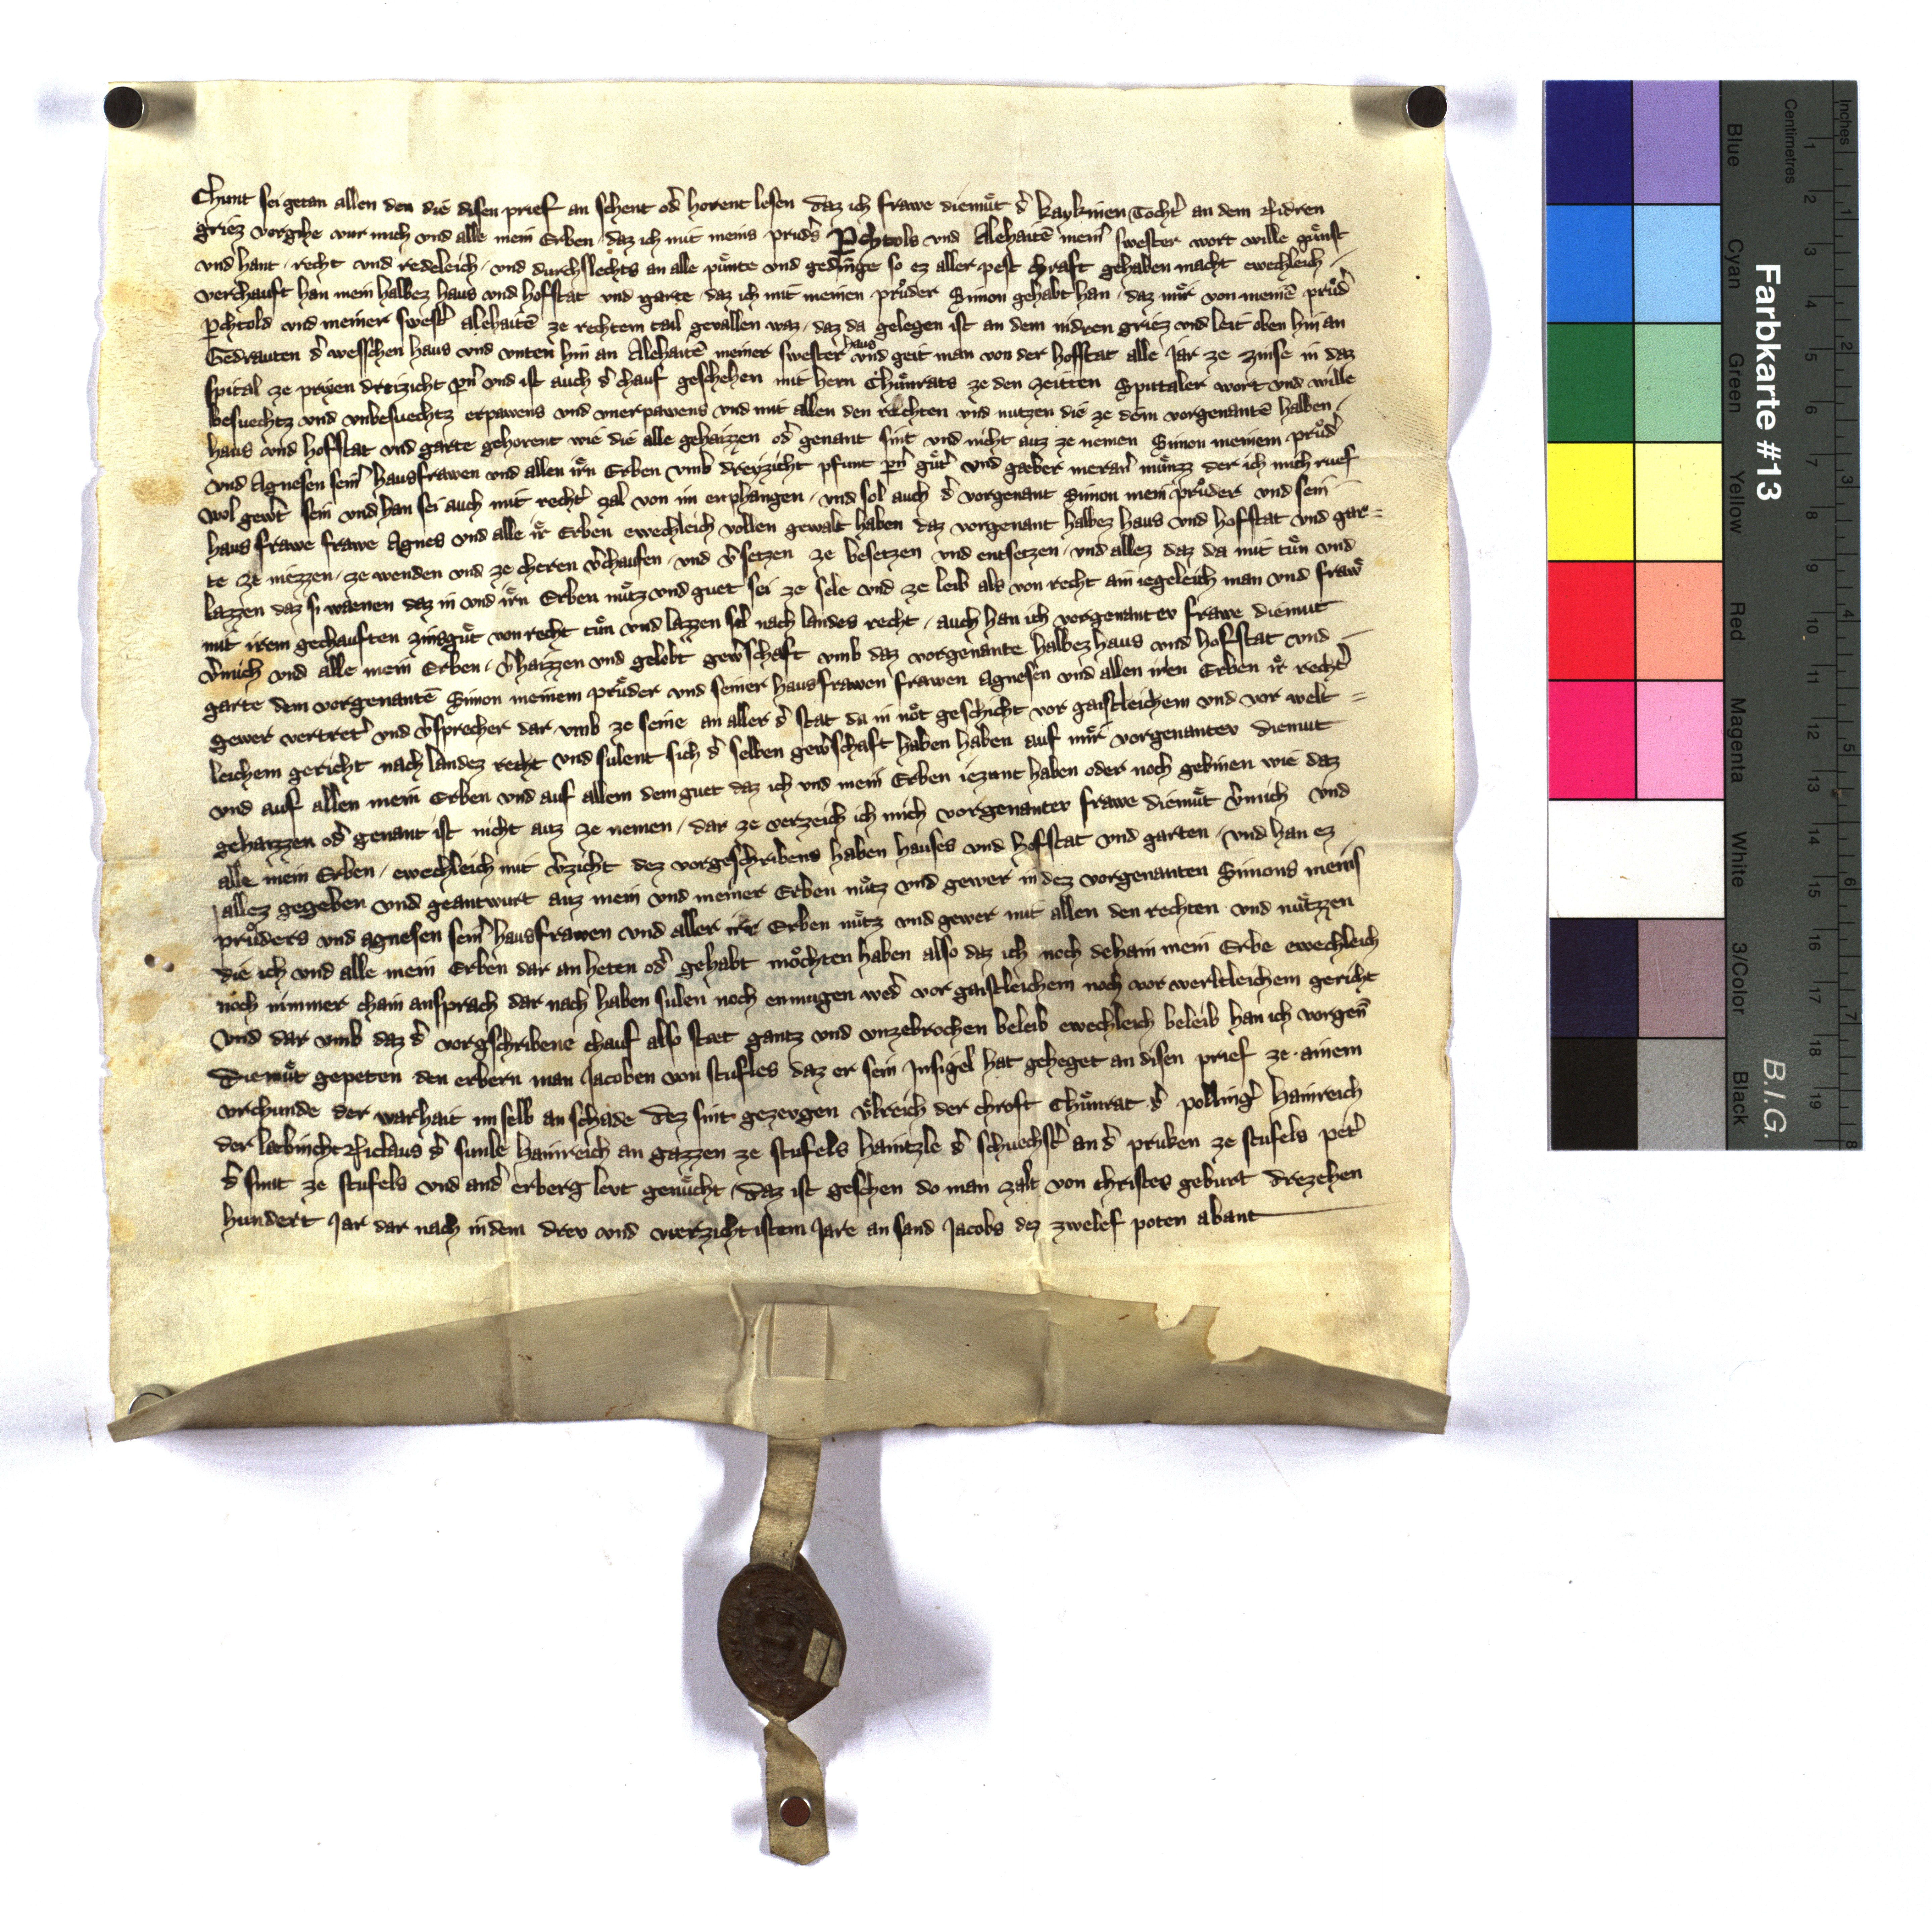 Chunt sei getan allen den die disen prief an sehent od̾ horent lesen daz ich frawe diemuͤt d̾ kaykinen Tocht̾ an dem Nidren
griez vorgihe wur mich vnd alle mein Erben / daz ich mit meins prud̾s Pchtols vnd Alehaitē mein̾ swester wort wille guͤnst
vnd hant / recht vnd redeleich / vnd durchslechts an alle puͤnte vnd gedinge so ez aller pest chraft gehaben macht ewechleich /
verchauft han mein halbez haus vnd hofstat vnd garte / daz ich mit meinen pruͦder Simon gehabt han / daz miͤr von meinē pruͦd̾
Pchtold vnd meiner swest̾ alehaitē ze rechtem tail gevallen waz / daz da gelegen ist an dem nidren griez vnd leit oben hin an
Gedrauten d̾ wesschen haus vnd vnten hin an Alehaitē meiner swester haus vnd geit man von der hofstat alle Jar ze zinse in daz
spital ze prixen dreizicht pn̾ vnd ist auch d̾ chauf geschehen mit hern Chuͤnrats ze den zeitten Spittaler wort vnd wille
besuechtz vnd vnbesuechtz erpawens vnd vnerpawens vnd mit allen den rechten vnd nutzen die ze dem vorgenantē halben /
haus vnd hofstat vnd garte gehorent wie die alle gehaizzen od̾ genant sint vnd nicht auz ze nemen Simon meinem pruͦd̾
vnd Agnesen sein̾ hausfrawen vnd allen iͤrn Erben vmb dreyzicht pfunt pn̾ guͤt̾ vnd gaeber meran̾ muͤnzz der ich mich ruef
wol gew̾t sein vnd han sei auch mit recht̾ zal von im enphangen / vnd sol auch d̾ vorgenant Simon mein pruͦder vnd sein
haus frawe frawe Agnes vnd alle iͤr Erben ewechleich vollen gewalt haben daz vorgenant halbez haus vnd hofstat vnd gar=
te ze niezzen / ze wenden vnd ze cheren v̾chaufen / vnd v̾setzen ze besetzen vnd entsetzen / vnd allez daz da mit tuͤn vnd
lazzen daz si waenen daz in vnd iͤrn Erben nuͤtz vnd guet sei ze sele vnd ze leib als von recht ain iegeleich man vnd frawͤ
mit irem gechauften zinsguͤt von recht tuͤn vnd lazzen sol nach landes recht / auch han ich vorgenantev frawe diemut
v̾mich vnd alle mein Erben / v̾haizzen vnd gelobt gew̾schaft vmb daz vorgenante halbez haus vnd hofstat vnd
garte dem vorgenantē Simon meinem pruͤder vnd seiner hausfrawen frawen Agnesen vnd allen iren Erben iͤr recht̾
gewer vertret̾ vnd v̾sprecher dar vmb ze seine an aller d̾ stat da in noͤt geschicht vor gaistleichem vnd vor welt=
leichem gericht nach landez recht vnd sulent sich d̾ selben gew̾schaft haben haben auf miͤr vorgenantev diemut
vnd auf allen mein Erben vnd auf allem dem guet daz ich vnd mein Erben iezunt haben oder noch gebinen wie daz
gehaizzen od̾ genant ist nicht auz ze nemen / dar ze verzeich ich mich vorgenantev frawe diemuͤt v̾mich vnd
alle mein Erben / ewechleich mit v̾zicht dez vorgeschribens haben hauses vnd hofstat vnd garten / vnd han ez
allez gegeben vnd geantwurt auz mein vnd meiner Erben nuͤtz vnd gewer in dez vorgenanten Simons meins
pruͦders vnd agnesen sein̾ hausfrawen vnd aller irr Erben nuͤtz vnd gewer mit allen den rechten vnd nuͤtzzen
die ich vnd alle mein Erben dar an heten od̾ gehabt moͤchten haben also daz ich noch dehain mein Erbe ewechleich
noch nimmer chain ansprach dar nach haben sulen noch enmugen wed̾ vor gaistleichem noch vor werltleichem gericht
Vnd dar vmb daz d̾ vorgschribene chauf also staet gantz vnd vnzebrochen beleib ewechleich beleib han ich vorgen̄
Diemuͤt gepeten den erbern man Jacoben von stufles daz er sein Jnsigel hat geheget an disen prief ze ainem
vrchunde der warhait im selb an schade Dez sint gezevgen vͤlreich der chroft Chuͤnrat d̾ polling̾ Hainreich
der laebincht Niclaus d̾ sunle Hainreich an gazzen ze stufels haintzle d̾ schuechst̾ an d̾ pruken ze stufels pet̾
d̾ smit ze stufels vnd and̾ erberg levt genuͤcht / Daz ist geschen do man zalt von christes geburt Drezehen
hundert Jar dar nach in dem drev vnd vierzichtistem Jare an sand Jacobs dez zwelef poten abant
Farbkarte #13
B.I.G.
Centimetres
Inches
Blue
Cyan
Green
Yellow
Red
Magenta
White
3/Color
Black
1 2 3 4 5 6 7 8 9 10 11 12 13 14 15 16 17 18 19
1 2 3 4 5 6 7 8